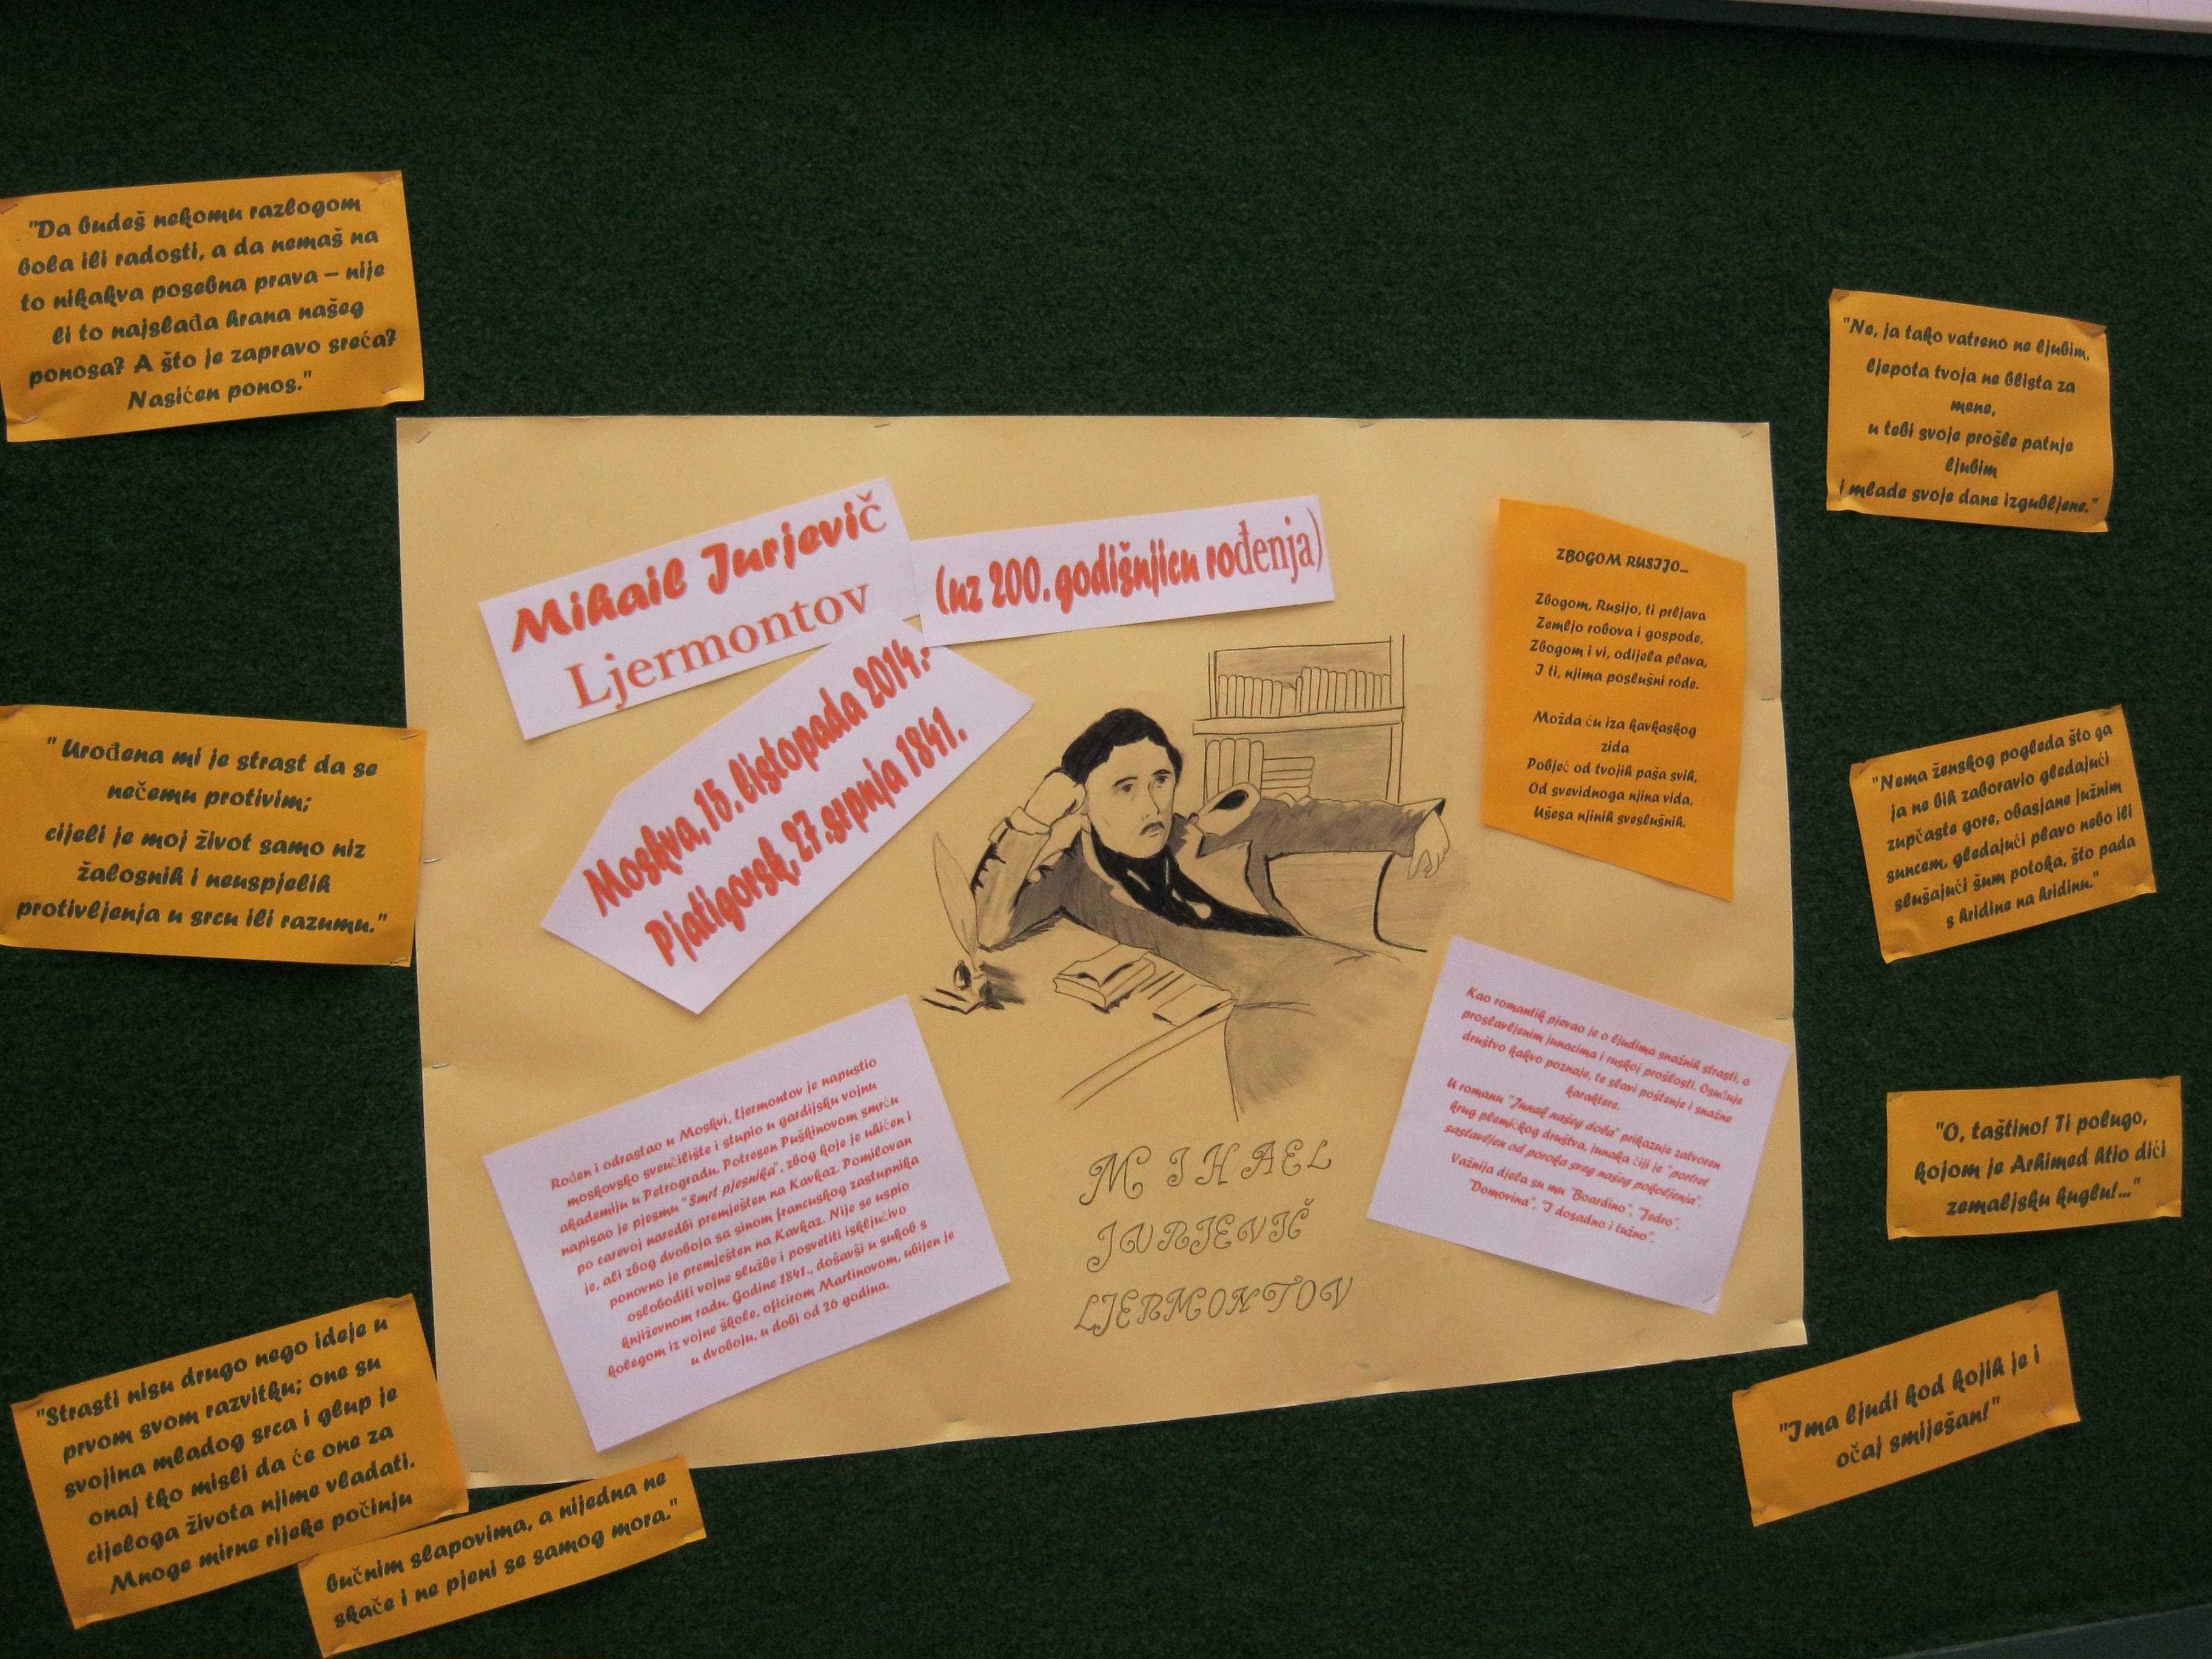 "Da budeš nekomu razlogom
bola ili radosti, a da nemaš na
to nikakva posebna prava – nije
li to najslađa hrana našeg
ponosa? A što je zapravo sreća?
Nasićen ponos."
" Urođena mi je strast da se
nečemu protivim;
cijeli je moj život samo niz
žalosnih i neuspjelih
protivljenja u srcu ili razumu."
"Strasti nisu drugo nego ideje u
prvom svom razvitku; one su
svojina mladog srca i glup je
onaj tko misli da će one za
cijeloga života njime vladati.
Mnoge mirne rijeke počinju
bučnim slapovima, a nijedna ne
skače i ne pjeni se samog mora."
Mihail Jurjevič
Ljermontov
(uz 200. godišnjicu rođenja)
Moskva, 15. listopada 2014.-
Pjatigorsk, 27.srpnja 1841.
Rođen i odrastao u Moskvi, Ljermontov je napustio
moskovsko sveučilište i stupio u gardijsku vojnu
akademiju u Petrogradu. Potresen Puškinovom smrću
napisao je pjesmu "Smrt pjesnika", zbog koje je uhićen i
po carevoj naredbi premješten na Kavkaz. Pomilovan
je, ali zbog dvoboja sa sinom francuskog zastupnika
ponovno je premješten na Kavkaz. Nije se uspio
osloboditi vojne službe i posvetiti isključivo
književnom radu. Godine 1841., došavši u sukob s
kolegom iz vojne škole, oficirom Martinovom, ubijen je
u dvoboju, u dobi od 26 godina.
MIHAEL
JURJEVIČ
LJERMONTOV
ZBOGOM RUSIJO...
Zbogom, Rusijo, ti prljava
Zemljo robova i gospode,
Zbogom i vi, odijela plava,
I ti, njima poslušni rode.
Možda ću iza kavkaskog
zida
Pobjeć od tvojih paša svih,
Od svevidnoga njina vida,
Ušesa njinih sveslušnih.
Kao romantik pjevao je o ljudima snažnih strasti, o
proslavljenim junacima i ruskoj prošlosti. Osuđuje
društvo kakvo poznaje, te slavi poštenje i snažne
karaktere.
U romanu "Junak našeg doba" prikazuje zatvoren
krug plemićkog društva, junaka čiji je "portret
sastavljen od poroka sveg našeg pokoljenja".
Važnija djela su mu "Boardino", "Jedro",
"Domovina", "I dosadno i tužno".
"Ne, ja tako vatreno ne ljubim,
ljepota tvoja ne blista za
mene,
u tebi svoje prošle patnje
ljubim
i mlade svoje dane izgubljene."
"Nema ženskog pogleda što ga
ja ne bih zaboravio gledajući
zupčaste gore, obasjane južnim
suncem, gledajući plavo nebo ili
slušajući šum potoka, što pada
s hridine na hridinu."
"O, taštino! Ti polugo,
kojom je Arhimed htio dići
zemaljsku kuglu!..."
"Ima ljudi kod kojih je i
očaj smiješan!"